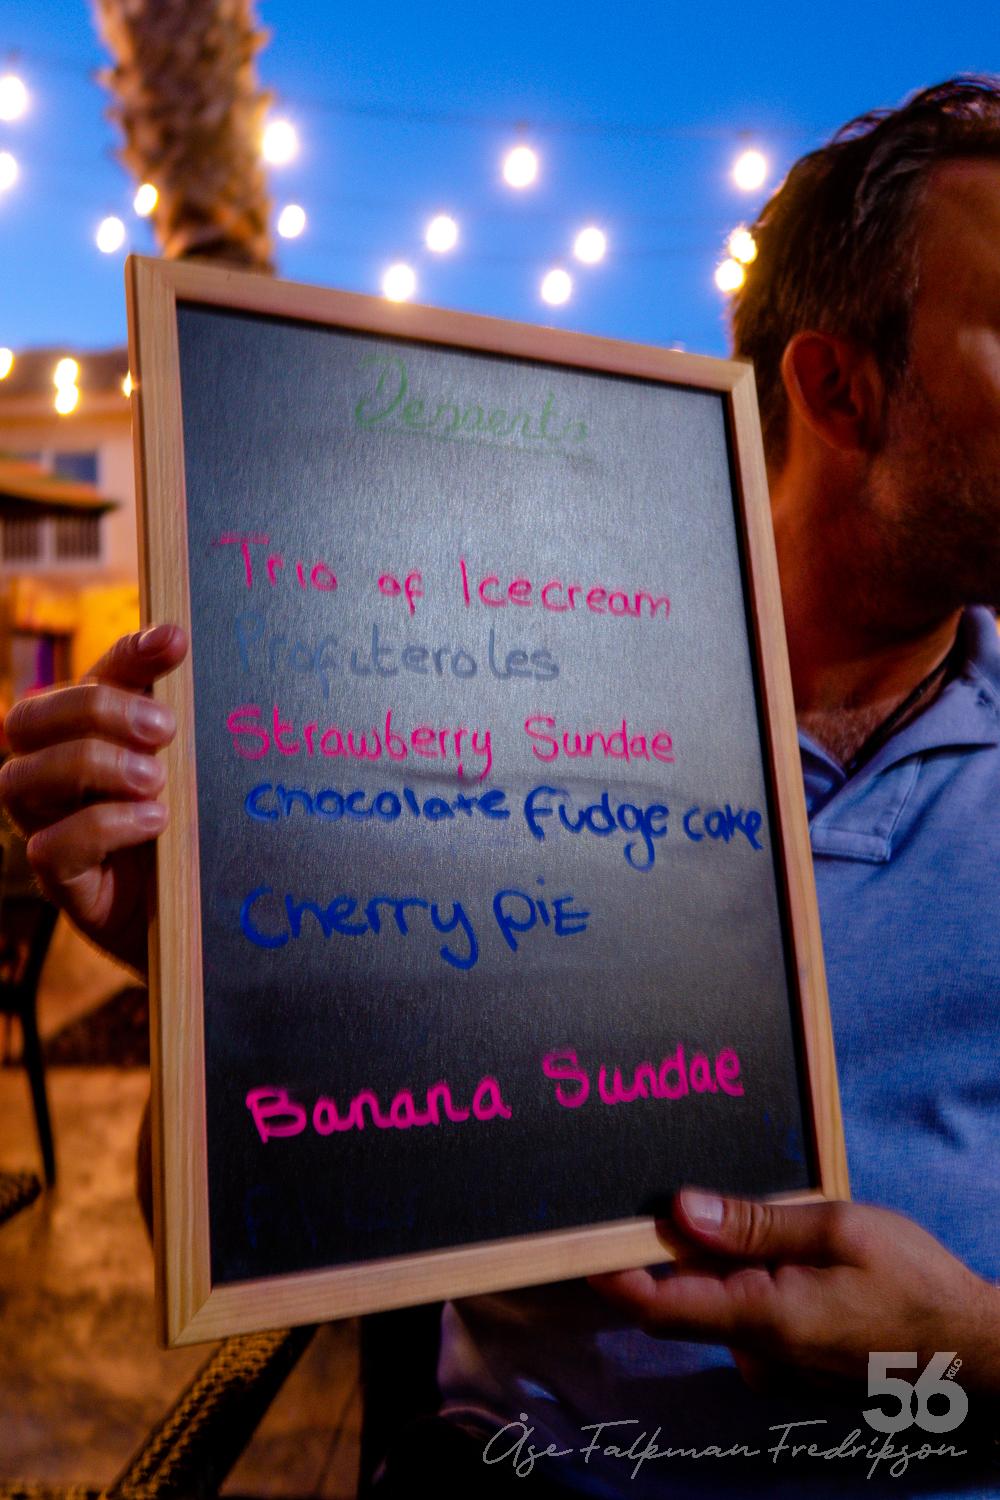 Desserts
Trio of Icecream
Profiteroles
Strawberry Sundae
Chocolate fudge cake
Cherry piE
Banana Sundae
56 KILO
Åse Falkman Fredrikson